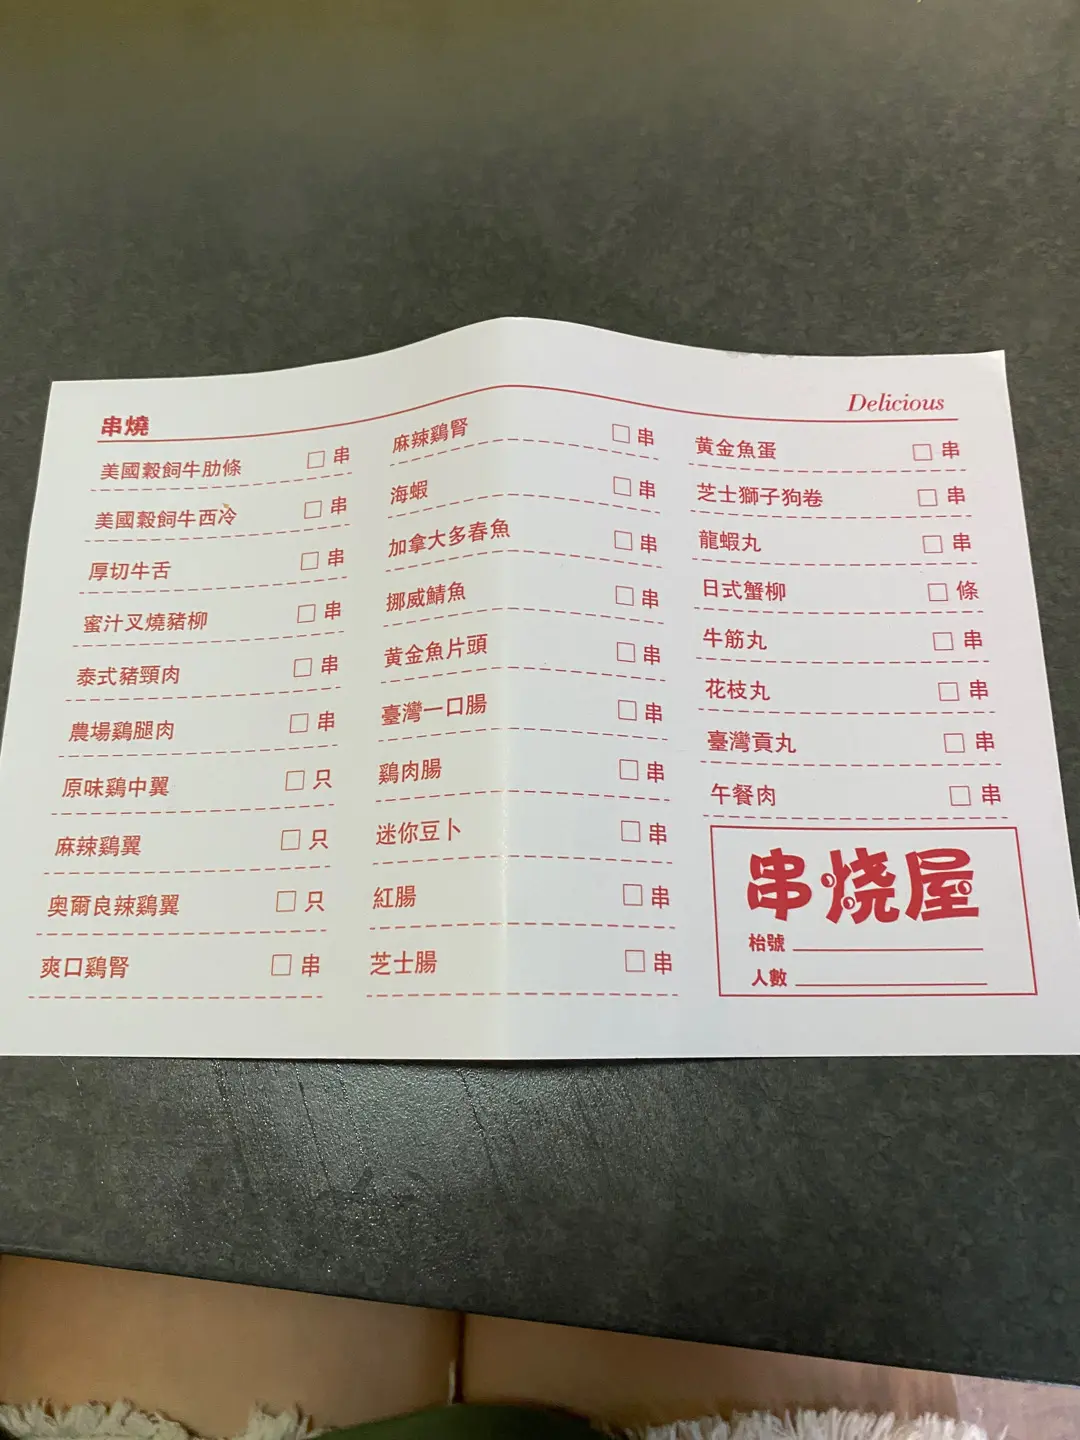 Delicious
串燒
美國穀飼牛肋條 □ 串
美國穀飼牛西冷 □ 串
厚切牛舌 □ 串
蜜汁叉燒豬柳 □ 串
泰式豬頸肉 □ 串
農場鷄腿肉 □ 串
原味鷄中翼 □ 只
麻辣鷄翼 □ 只
奥爾良辣鷄翼 □ 只
爽口鷄腎 □ 串
麻辣鷄腎 □ 串
海蝦 □ 串
加拿大多春魚 □ 串
挪威鯖魚 □ 串
黄金魚片頭 □ 串
臺灣一口腸 □ 串
鷄肉腸 □ 串
迷你豆卜 □ 串
紅腸 □ 串
芝士腸 □ 串
黄金魚蛋 □ 串
芝士獅子狗卷 □ 串
龍蝦丸 □ 串
日式蟹柳 □ 條
牛筋丸 □ 串
花枝丸 □ 串
臺灣貢丸 □ 串
午餐肉 □ 串
串烧屋
枱號
人數